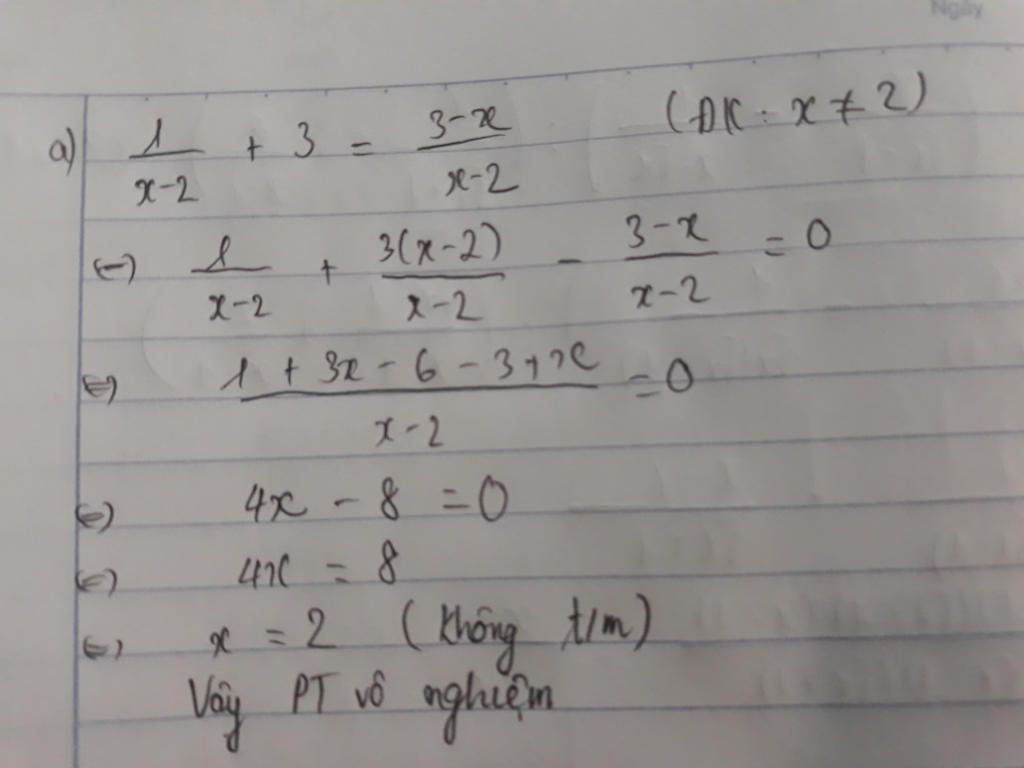 Ngày
a) 1/(x-2) + 3 = (3-x)/(x-2) (ĐK: x ≠ 2)
(=) 1/(x-2) + 3(x-2)/(x-2) - (3-x)/(x-2) = 0
(=) (1 + 3x - 6 - 3 + x)/(x-2) = 0
(=) 4x - 8 = 0
(=) 4x = 8
(=) x = 2 (không t/m)
Vậy PT vô nghiệm